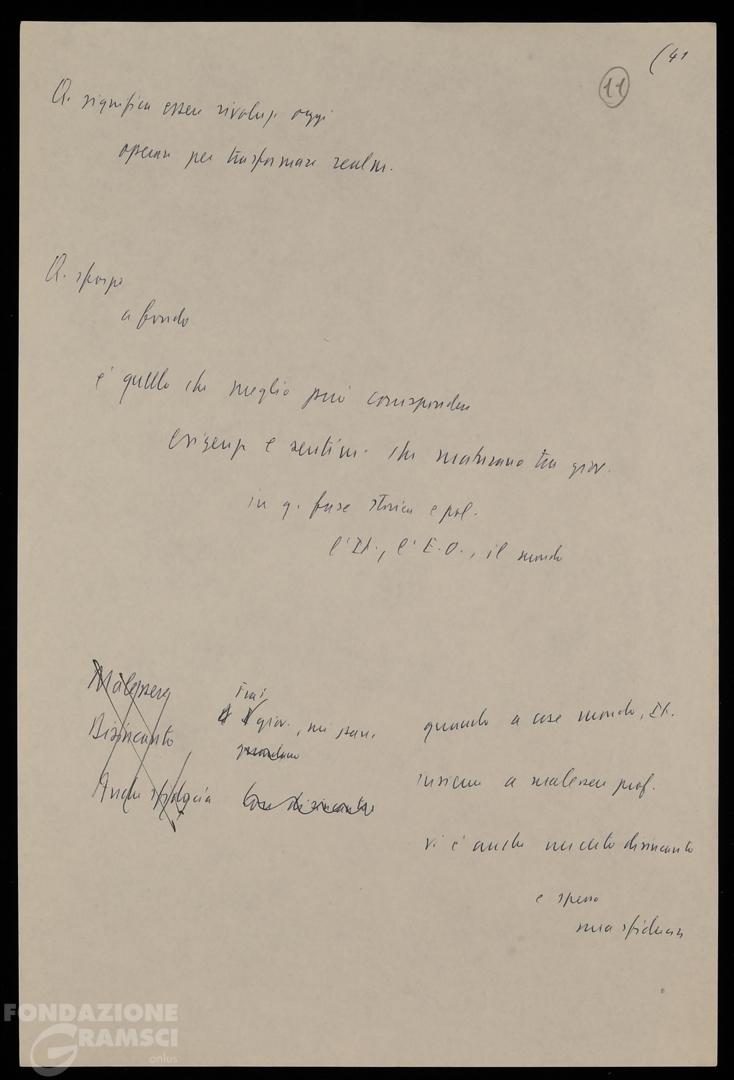 (41
11
Q. significa essere rivoluz oggi
operare per trasformare realtà.
Q. sforzo
a fondo
è quello che meglio può corrispondere
esigenze e sentim. che maturano tra giov.
in q. fase storica e pol.
l'It., l'E.O., il mondo
Malessere
Disincanto
Anche sfiducia
Frai
giov., mi pare,
guardano
quando a cose mondo, It.
insieme a malessere prof.
vi è anche un certo disincanto
e spesso
una sfiducia
FONDAZIONE
GRAMSCI
onlus